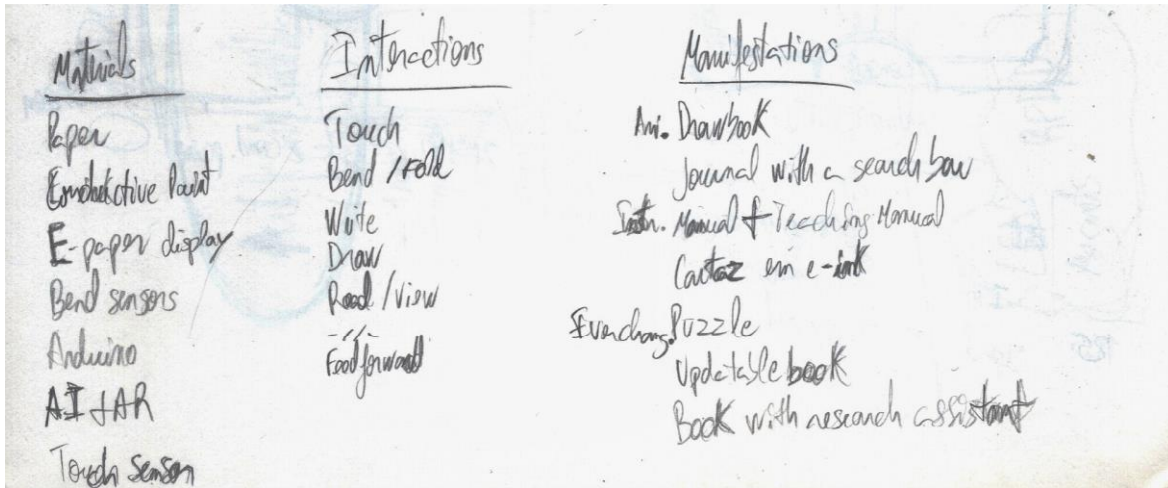 Materials
Paper
Conductive Paint
E-paper display
Bend sensors
Arduino
AI + AR
Touch sensor
Interactions
Touch
Bend / Fold
Write
Draw
Read / View
-//-
Feedforward
Manifestations
Ani. Drawbook
Journal with a search bar
Instr. Manual + Teaching Manual
Cartaz em e-ink
Everchang. Puzzle
Updatable book
Book with research assistant